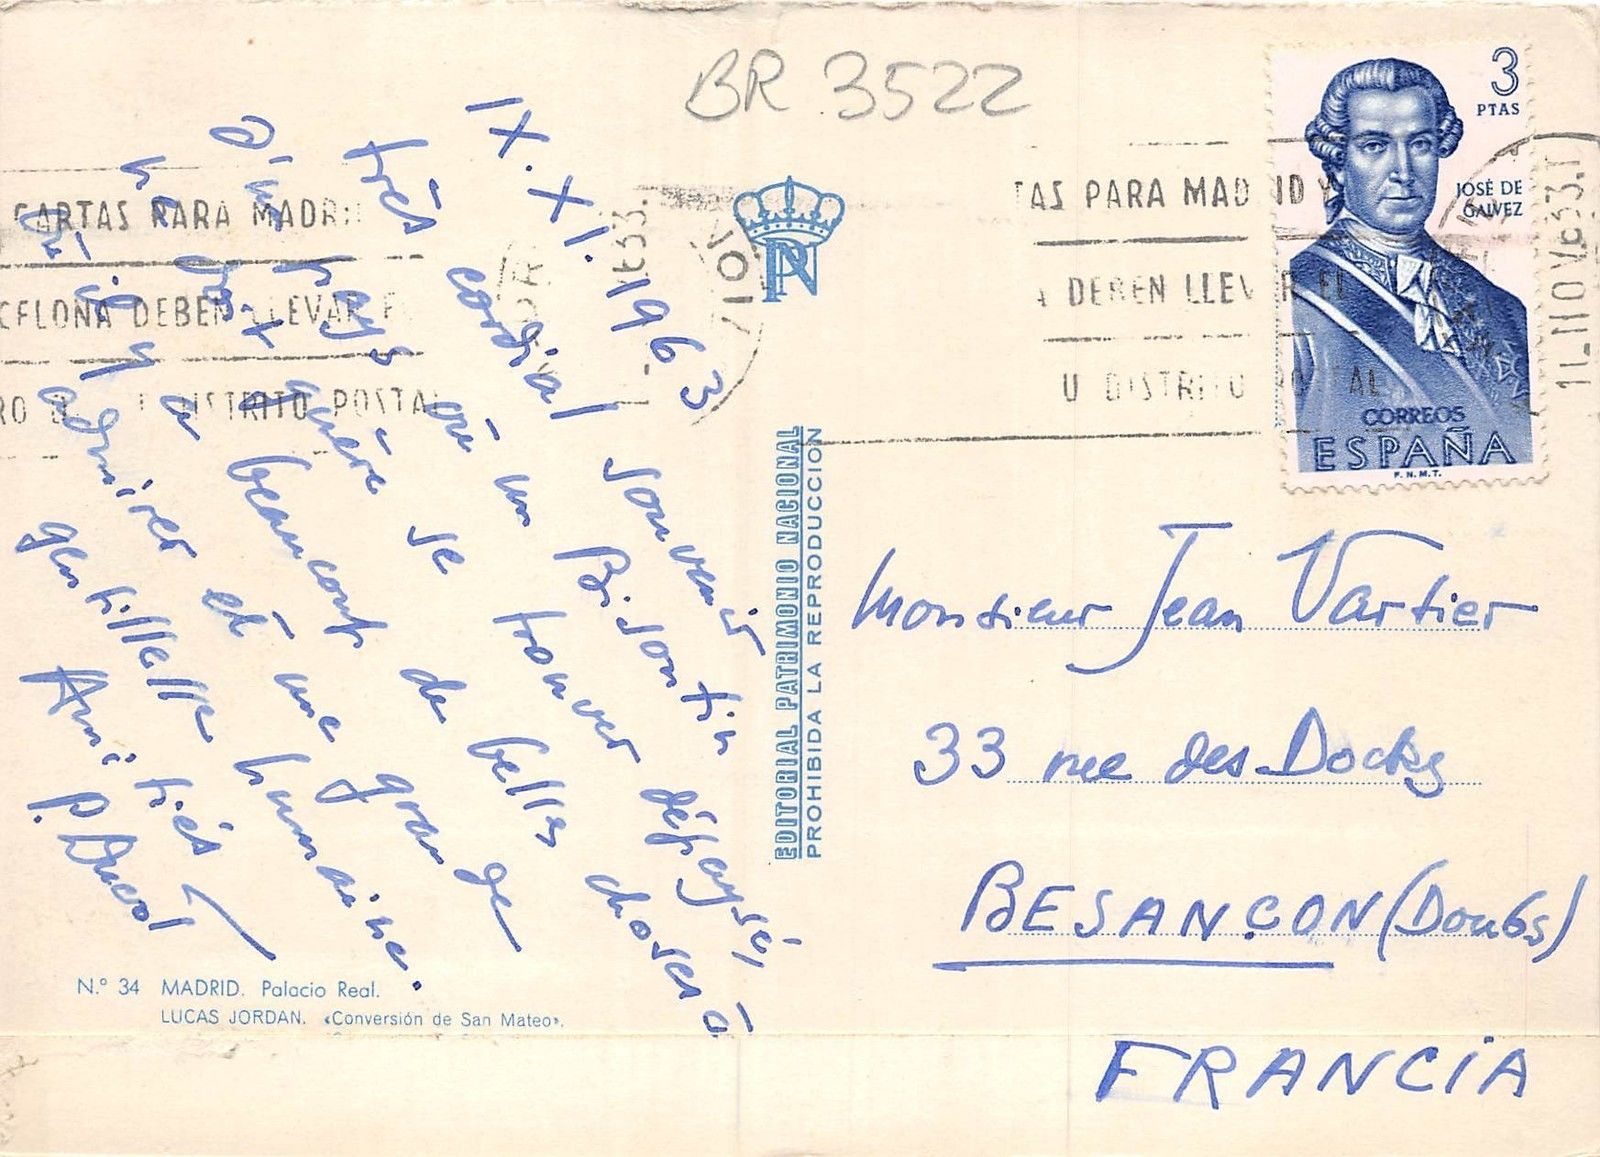 BR 3522
3
PTAS
JOSÉ DE
GALVEZ
CORREOS
ESPAÑA
F.N.M.T.
CARTAS PARA MADRI
CELONA DEBEN LLEVAR E
DISTRITO POSTAL
TAS PARA MADRID Y
A DEBEN LLEVAR EL
U DISTRITO POSTAL
11-NOV 63 3.T
IX.XI.1963
très cordial souvenir
d'un pays où un Bisontin
ne doit guère se trouver dépaysé,
où il y a beaucoup de belles choses à
admirer et une grande
gentillesse humaine.
Amitiés
P.
EDITORIAL PATRIMONIO NACIONAL
PROHIBIDA LA REPRODUCCION
PN
Monsieur Jean Vartier
33 rue des Docks
BESANÇON (Doubs)
FRANCIA
N.º 34 MADRID. Palacio Real.
LUCAS JORDAN. «Conversión de San Mateo».